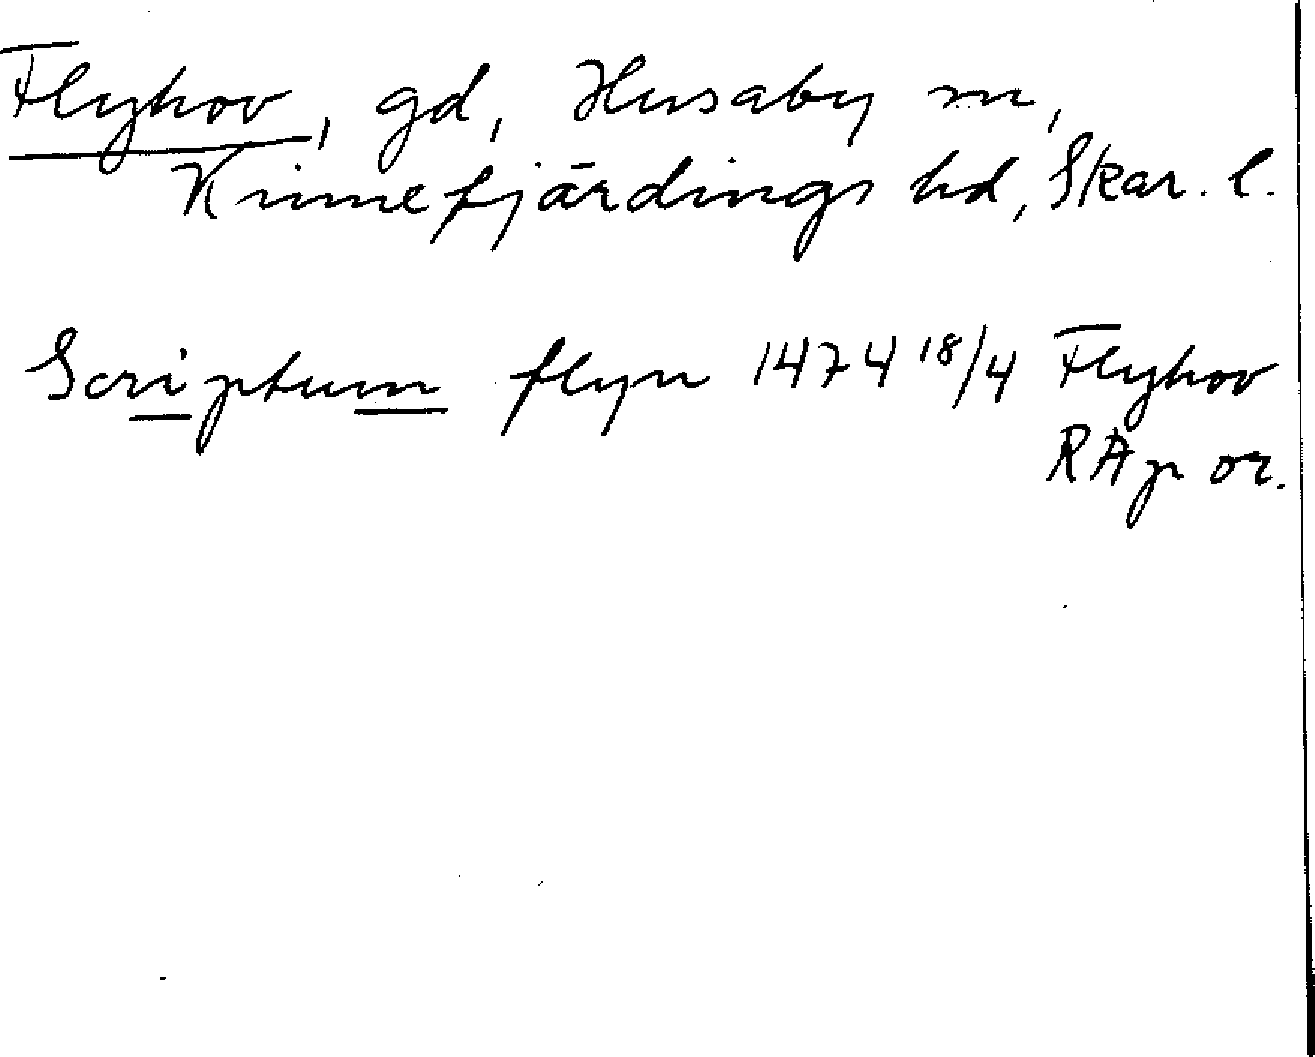 Flyhov, gd, Husaby sn,
Kinnefjärdings hd, Skar. l.
Scriptum flyn 1474 18/4 Flyhov
RAp or.